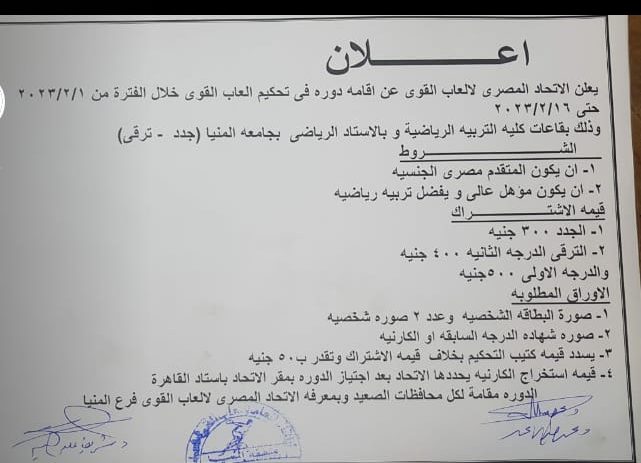 اعـــــلان
يعلن الاتحاد المصرى لالعاب القوى عن اقامه دوره فى تحكيم العاب القوى خلال الفترة من ٢٠٢٣/٢/١
حتى ٢٠٢٣/٢/١٦
وذلك بقاعات كليه التربيه الرياضية و بالاستاد الرياضى بجامعه المنيا (جدد - ترقى)
الشـــــروط
١- ان يكون المتقدم مصرى الجنسيه
٢- ان يكون مؤهل عالى و يفضل تربيه رياضيه
قيمه الاشتـــــراك
١- الجدد ٣٠٠ جنيه
٢- الترقى الدرجه الثانيه ٤٠٠ جنيه
والدرجه الاولى ٥٠٠جنيه
الاوراق المطلوبه
١- صورة البطاقه الشخصيه وعدد ٢ صوره شخصيه
٢- صوره شهاده الدرجه السابقه او الكارنيه
٣- يسدد قيمه كتيب التحكيم بخلاف قيمه الاشتراك وتقدر ب٥٠ جنيه
٤- قيمه استخراج الكارنيه يحددها الاتحاد بعد اجتياز الدوره بمقر الاتحاد باستاد القاهرة
الدوره مقامة لكل محافظات الصعيد وبمعرفه الاتحاد المصرى لالعاب القوى فرع المنيا